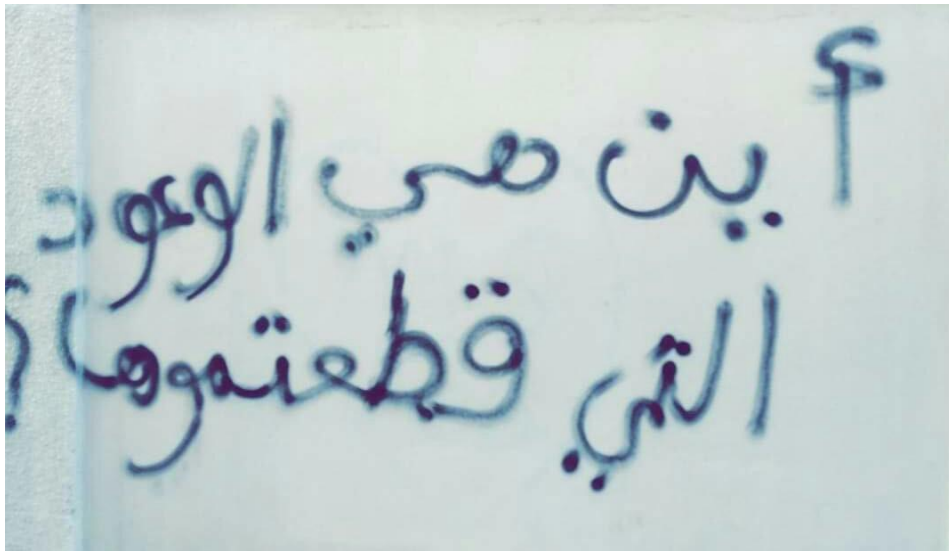 أين هي الوعود
التي قطعتموها؟